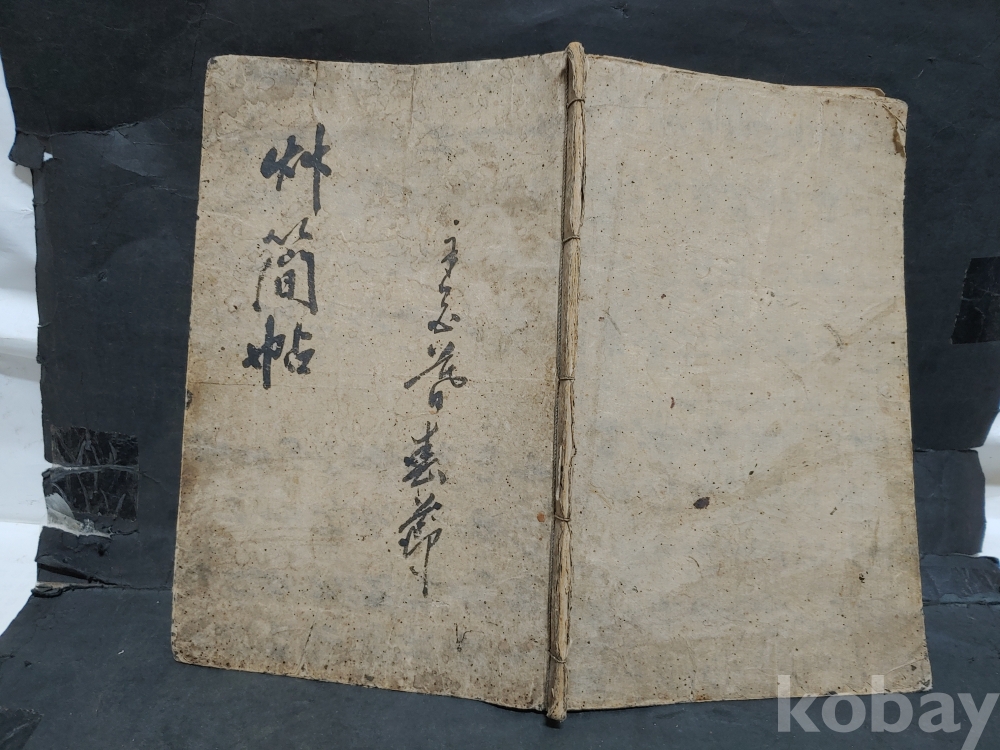 艸簡帖
暮春節
kobay